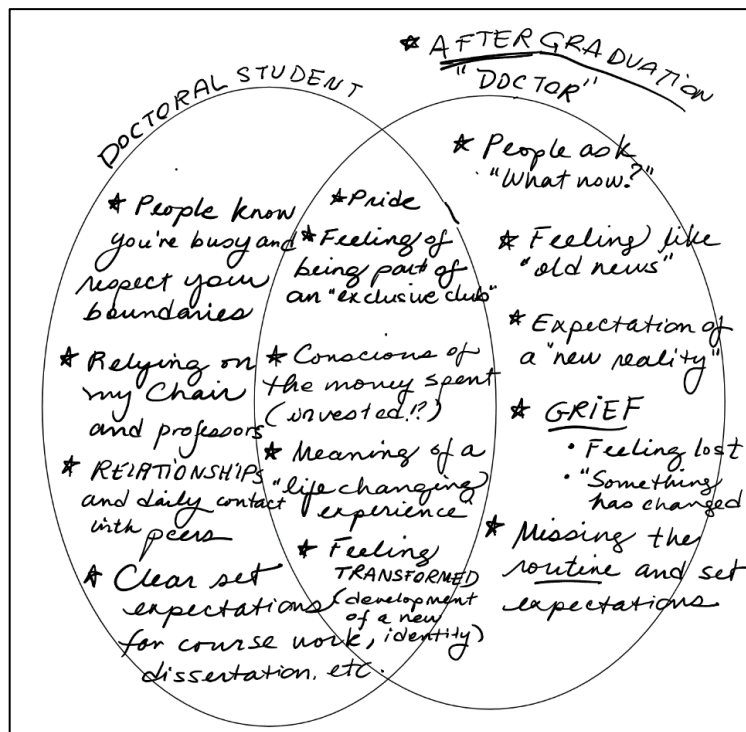 DOCTORAL STUDENT
★ AFTER GRADUATION
"DOCTOR"
★ People know
you're busy and
respect your
boundaries
★ Relying on
my Chair
and professors
★ RELATIONSHIPS
and daily contact
with peers
★ Clear set
expectations
for course work,
dissertation, etc.
★ Pride
★ Feeling of
being part of
an "exclusive club"
★ Conscious of
the money spent
(invested!?)
★ Meaning of a
"life changing
experience"
★ Feeling
TRANSFORMED
(development
of a new
identity)
★ People ask
"What now?"
★ Feeling like
"old news"
★ Expectation of
a "new reality"
★ GRIEF
• Feeling lost
• "Something
has changed
★ Missing the
routine and set
expectations